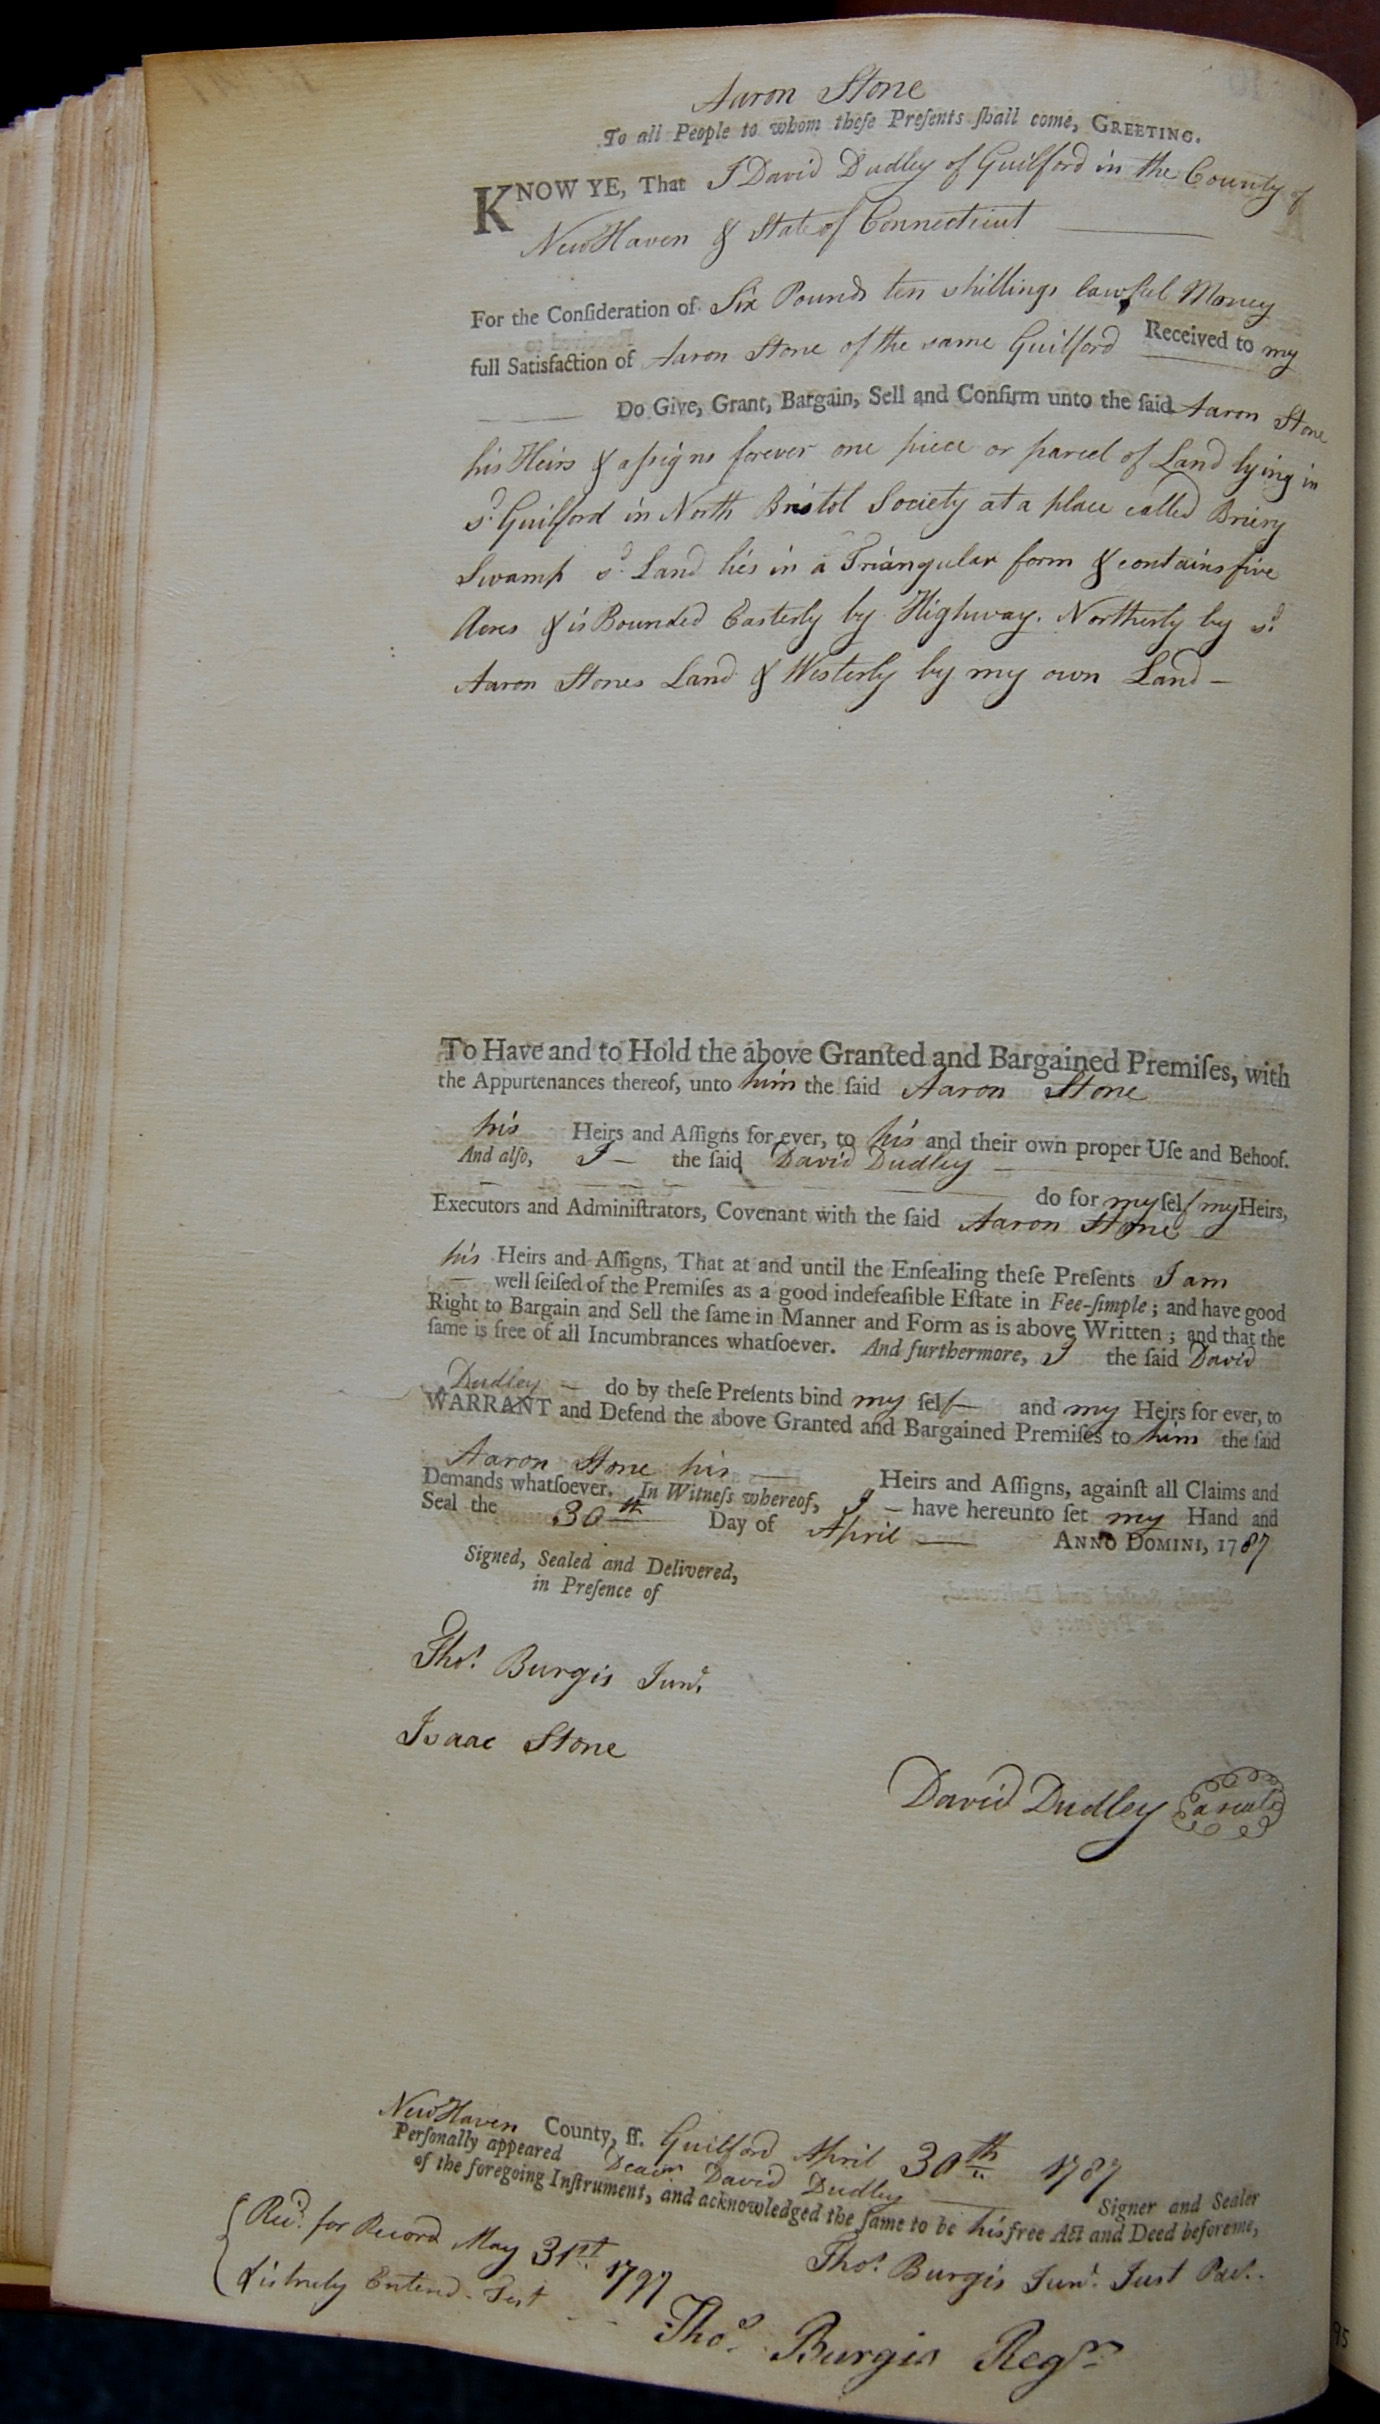 Aaron Stone
To all People to whom theſe Preſents ſhall come, GREETING.
KNOW YE, That I David Dudley of Guilford in the County of
New Haven & State of Connecticut
For the Conſideration of Six Pounds ten shillings lawful Money
Received to my
full Satisfaction of Aaron Stone of the same Guilford
Do Give, Grant, Bargain, Sell and Confirm unto the ſaid Aaron Stone
his Heirs & aſsigns forever one piece or parcel of Land lying in
sd. Guilford in North Bristol Society at a place called Briery
Swamp sd. Land lies in a Triangular form & contains five
Acres & is Bounded Easterly by Highway. Northerly by sd.
Aaron Stones Land & Westerly by my own Land –
To Have and to Hold the above Granted and Bargained Premiſes, with
the Appurtenances thereof, unto him the ſaid Aaron Stone
his Heirs and Aſſigns for ever, to his and their own proper Uſe and Behoof.
And alſo, I – the ſaid David Dudley –
do for my ſelf my Heirs,
Executors and Adminiſtrators, Covenant with the ſaid Aaron Stone
his Heirs and Aſſigns, That at and until the Enſealing theſe Preſents I am
well ſeiſed of the Premiſes as a good indefeaſible Eſtate in Fee-ſimple; and have good
Right to Bargain and Sell the ſame in Manner and Form as is above Written; and that the
ſame is free of all Incumbrances whatſoever. And furthermore, I the ſaid David
Dudley – do by theſe Preſents bind my ſelf – and my Heirs for ever, to
WARRANT and Defend the above Granted and Bargained Premiſes to him the ſaid
Aaron Stone his – Heirs and Aſſigns, againſt all Claims and
Demands whatſoever. In Witneſs whereof, I – have hereunto ſet my Hand and
Seal the 30th Day of April – ANNO DOMINI, 1787
Signed, Sealed and Delivered,
in Preſence of
Thos. Burgis Junr.
Isaac Stone
David Dudley a seal
New Haven County, ſſ. Guilford April 30th 1787
Perſonally appeared Deacn David Dudley Signer and Sealer
of the foregoing Inſtrument, and acknowledged the ſame to be his free Act and Deed before me,
Thos. Burgis Junr. Just Pace.
Recd. for Record May 31st 1797
& is truly Enterd – Test
Thos. Burgis Regr
95